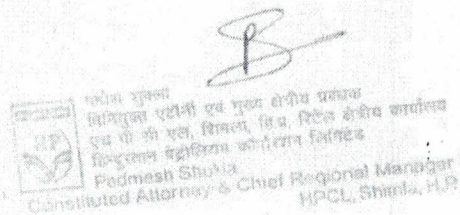 पद्मेश शुक्ला
विनियुक्त एटॉर्नी एवं मुख्य क्षेत्रीय प्रबन्धक
एच पी सी एल, शिमला, हि.प्र. रिटेल क्षेत्रीय कार्यालय
हिन्दुस्तान पेट्रोलियम कॉर्पोरेशन लिमिटेड
HP
Padmesh Shukla
Constituted Attorney & Chief Regional Manager
HPCL, Shimla, H.P.